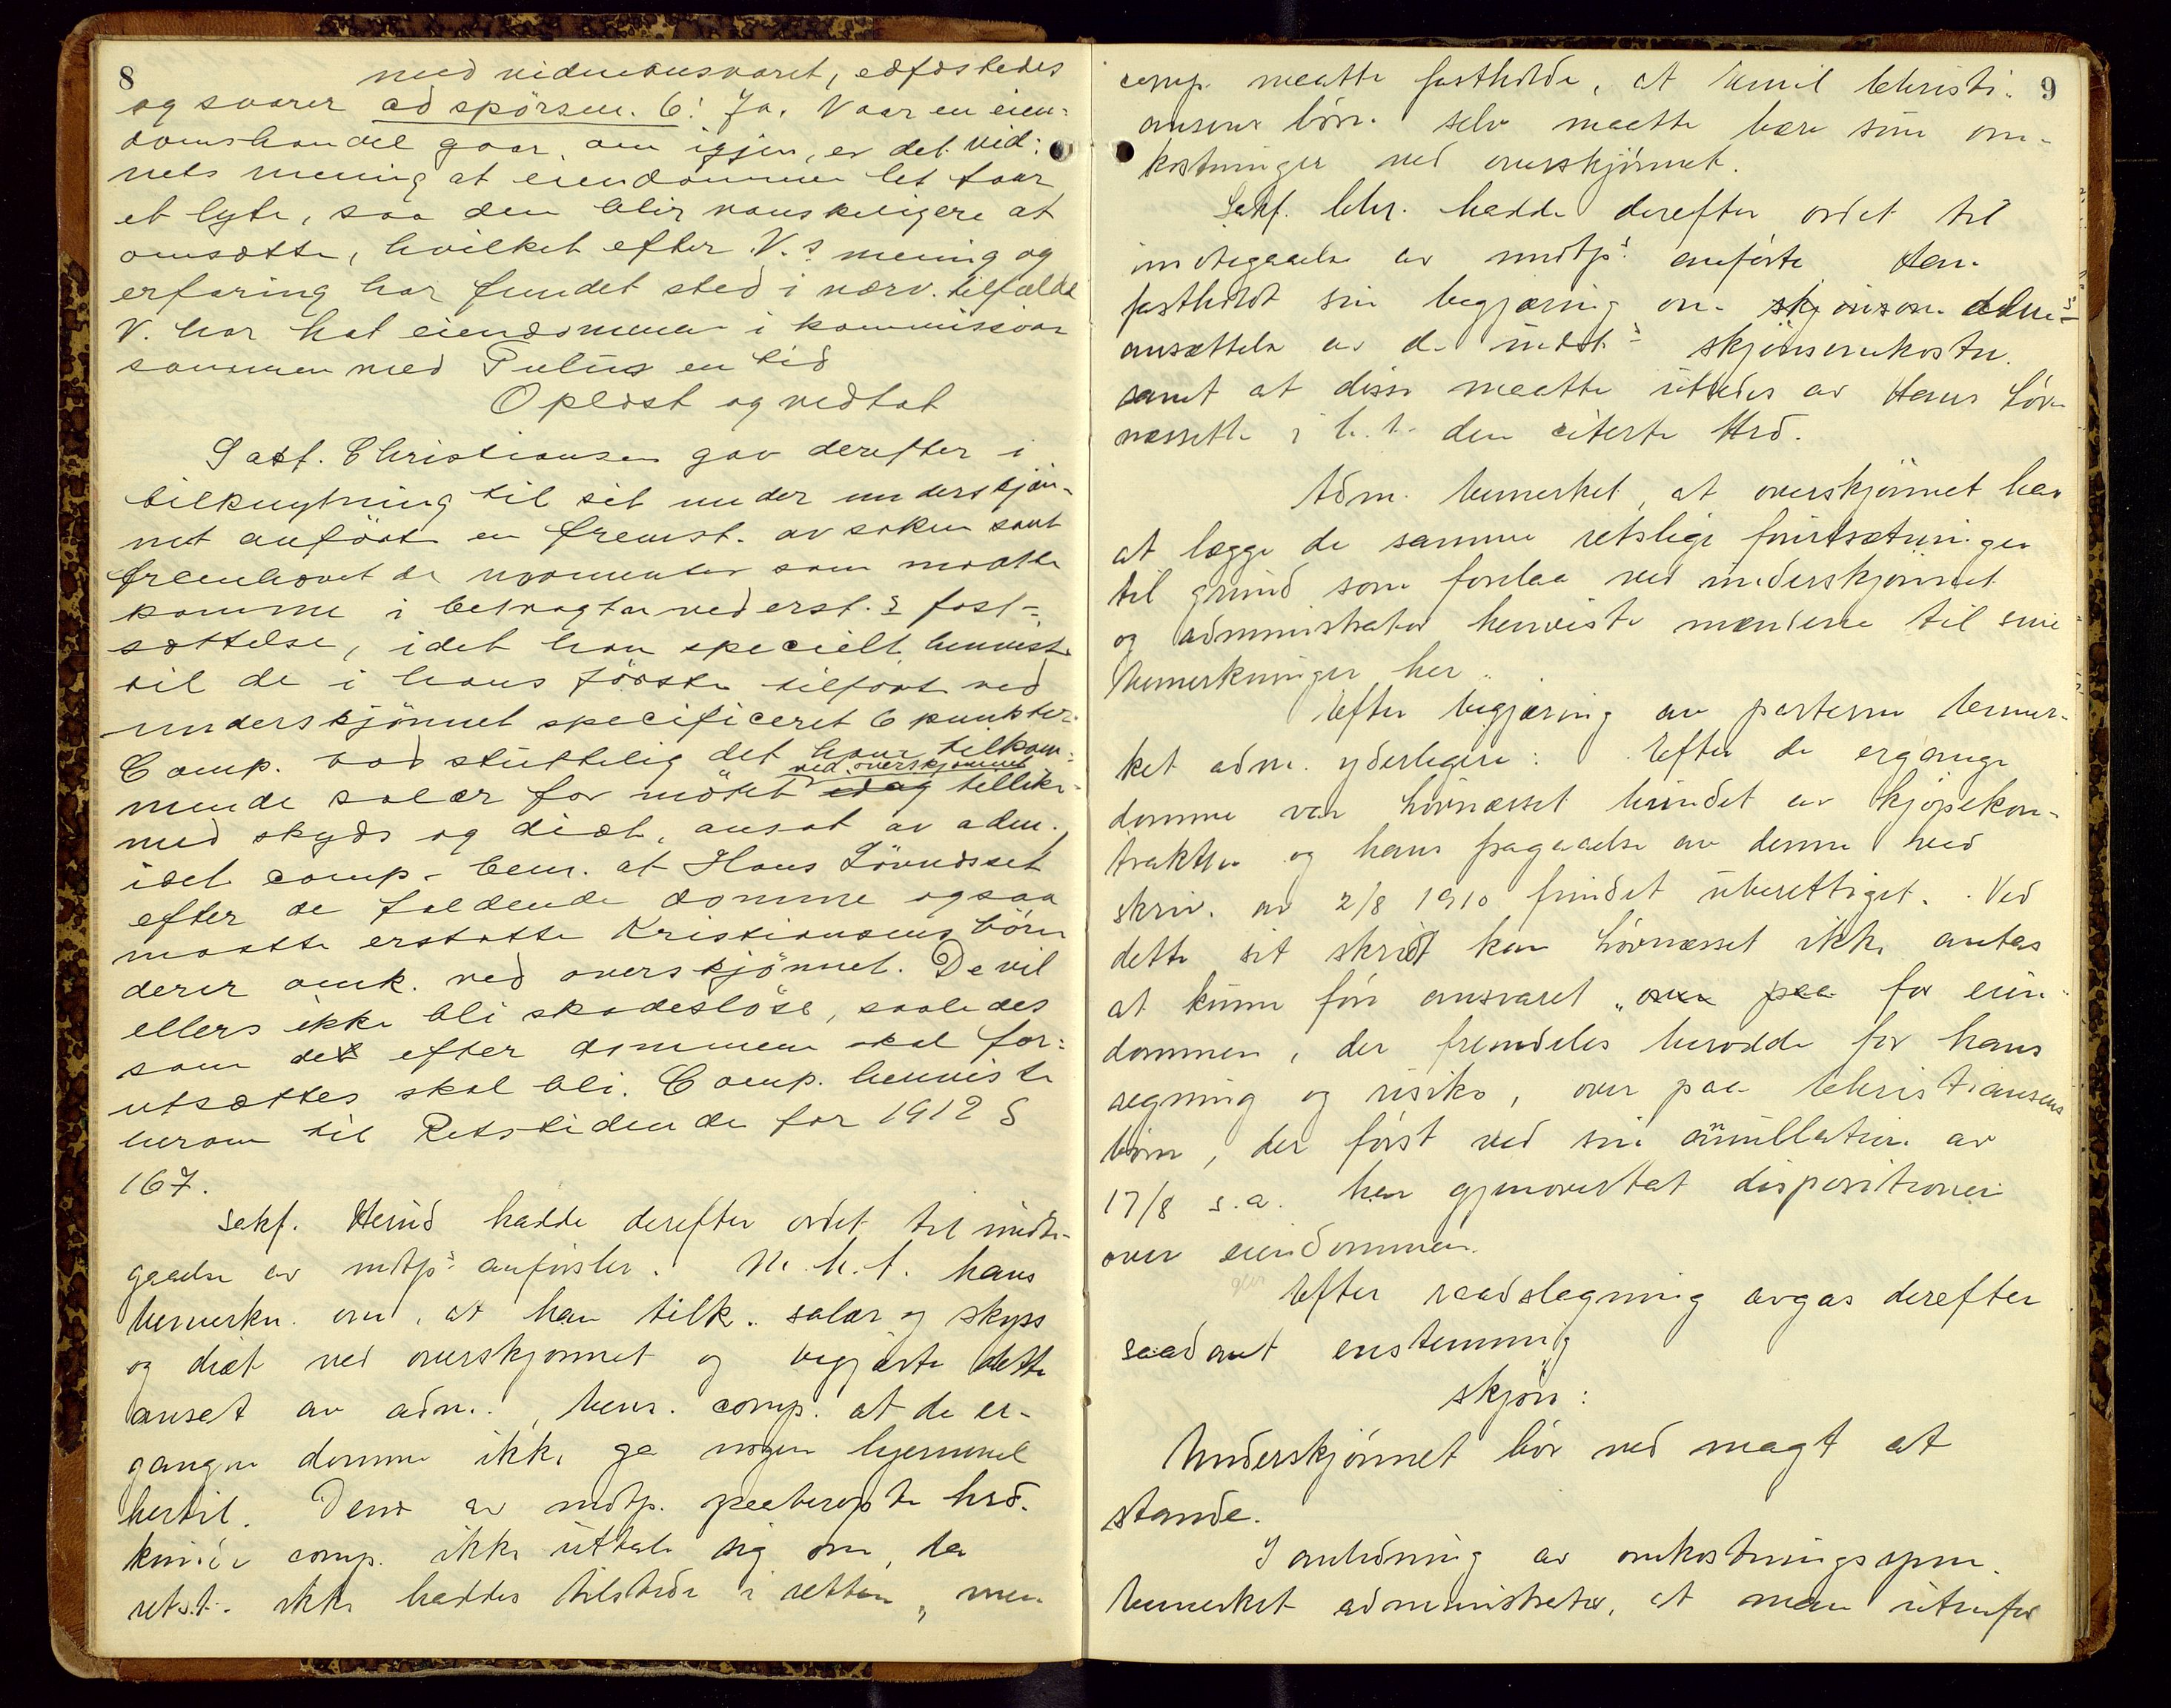 8
med vidneansvaret, edfæstedes
og svarer ad spörsm. 6: Ja. Naar en eien-
domshandel gaar om igjen, er det vid-
nets mening at eiendommen let faar
et lyte, saa den blir vanskeligere at
omsætte, hvilket efter V.s mening og
erfaring har fundet sted i nærv. tilfælde
V. har hat eiendommen i kommission
sammen med Tulius en tid
Oplæst og vedtat
Sakf. Christiansen gav derefter i
tilknytning til sit under underskjön-
net anförte en fremst. av saken samt
fremhævet de momenter som maatte
komme i betragtn ved erst.s fast-
sættelse, idet han specielt henviste
til de i hans förste tilfört ved
underskjönnet specificeret 6 punkter.
Comp. bad sluttelig det ham tilkom-
mende salær for mötet idag ved overskjønnet tillike-
med skyds og diæt, ansat av adm.,
idet comp. bem. at Hans Lövnæsset
efter de faldende domme ogsaa
maatte erstatte Kristiansens börn
deres omk. ved overskjönnet. De vil
ellers ikke bli skadeslöse, saaledes
som det efter dommen skal for-
utsættes skal bli. Comp. henviste
herom til Retstidende for 1912 S
167.
Sakf. Herud hadde derefter ordet til imöte-
gaaelse av motp.s anførsler. M. h. t. hans
bemerkn. om, at han tilk. salær og skyss
og diæt ved overskjønnet og begjærte dette
ansat av adm., bem. comp. at de er-
gangne domme ikke ga nogen hjemmel
hertil. Den av motp. paaberopte hrd.
kunde comp. ikke uttale sig om, da
retst. ikke haddes tilstede i retten, men
9
comp. maatte fastholde, at Emil Christi-
ansens børn selv maatte bære sine om-
kostninger ved overskjønnet.
Sakf. Chr. hadde derefter ordet til
imötegaaelse av motp.s anførte. Han
fastholdt sin begjæring om skjønsom adm.s
ansættelse av de skjønsomkostn.
samt at disse maatte utredes av Hans Løv-
næsset i h. t. den citerte Hrd.
Adm. bemerket, at overskjønnet har
at lægge de samme retslige forutsætninger
til grund som forelaa ved underskjønnet
og administrator henviste mændene til sine
bemerkninger her.
Efter begjæring av parterne bemer-
ket adm. yderligere: Efter de ergangne
domme var Løvnæsset bundet av kjøpekon-
trakten og hans fragaaelse av denne ved
skriv. av 2/8 1910 fundet uberettiget. Ved
dette sit skridt kan Løvnæsset ikke antas
at kunne føre ansvaret over paa for eien-
dommen, der fremdeles berodde for hans
regning og risiko, over paa Christiansens
børn, der først ved sin annullation av
17/8 s.a. har gjenoverstat dispositionen
over eiendommen.
Efter raadslagning avgas derefter
saadant enstemmig
skjøn:
Underskjønnet bør ved magt at
stande.
I anledning av omkostningsspm.
bemerket administrator, at man utenfor